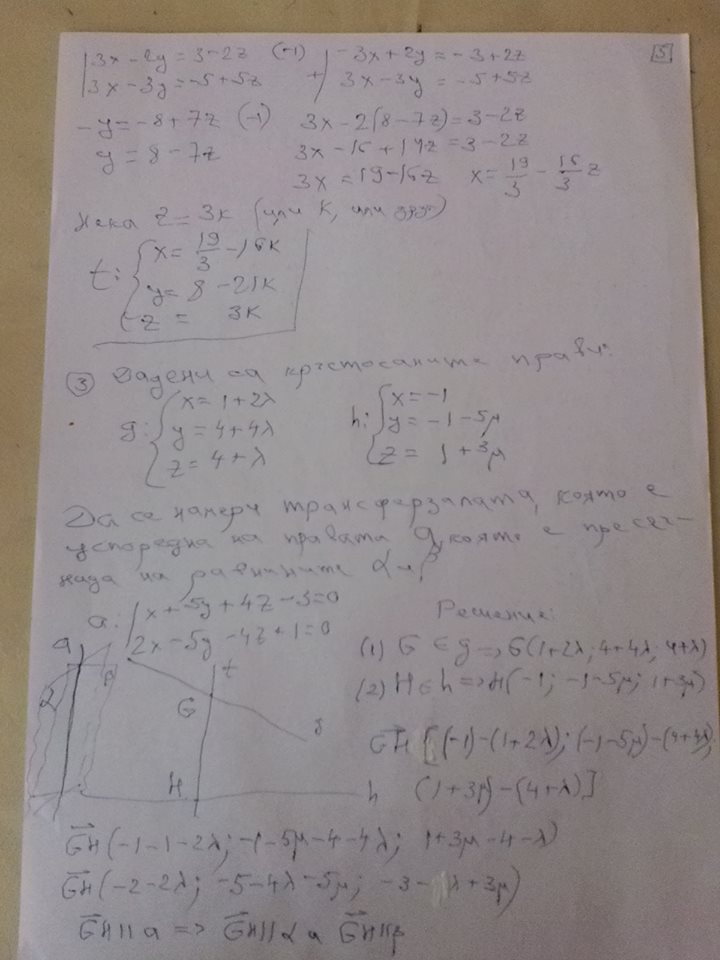 5
3x - 2y = 3 - 2z (-1)
3x - 3y = -5 + 5z
+
-3x + 2y = -3 + 2z
3x - 3y = -5 + 5z
-y = -8 + 7z (-1)
3x - 2(8 - 7z) = 3 - 2z
y = 8 - 7z
3x - 16 + 14z = 3 - 2z
3x = 19 - 16z x = 19/3 - 16/3 z
Нека z = 3k (или k, или
t: x = 19/3 - 16k
y = 8 - 21k
z = 3k
③ Дадени са кръстосаните прави:
g: x = 1 + 2λ
y = 4 + 4λ
z = 4 + λ
h: x = -1
y = -1 - 5μ
z = 1 + 3μ
Да се намери трансферзалата, която е
успоредна на правата a, която е пресеч-
ница на равнините α и β
a: x + 5y + 4z - 3 = 0
2x - 5y - 4z + 1 = 0
Решение:
(1) G ∈ g => G(1+2λ; 4+4λ; 4+λ)
(2) H ∈ h => H(-1; -1-5μ; 1+3μ)
a
α
β
t
G
g
H
h
GH [(-1)-(1+2λ); (-1-5μ)-(4+4λ);
(1+3μ)-(4+λ)]
GH(-1-1-2λ; -1-5μ-4-4λ; 1+3μ-4-λ)
GH(-2-2λ; -5-4λ-5μ; -3-λ+3μ)
GH || a => GH || α и GH || β